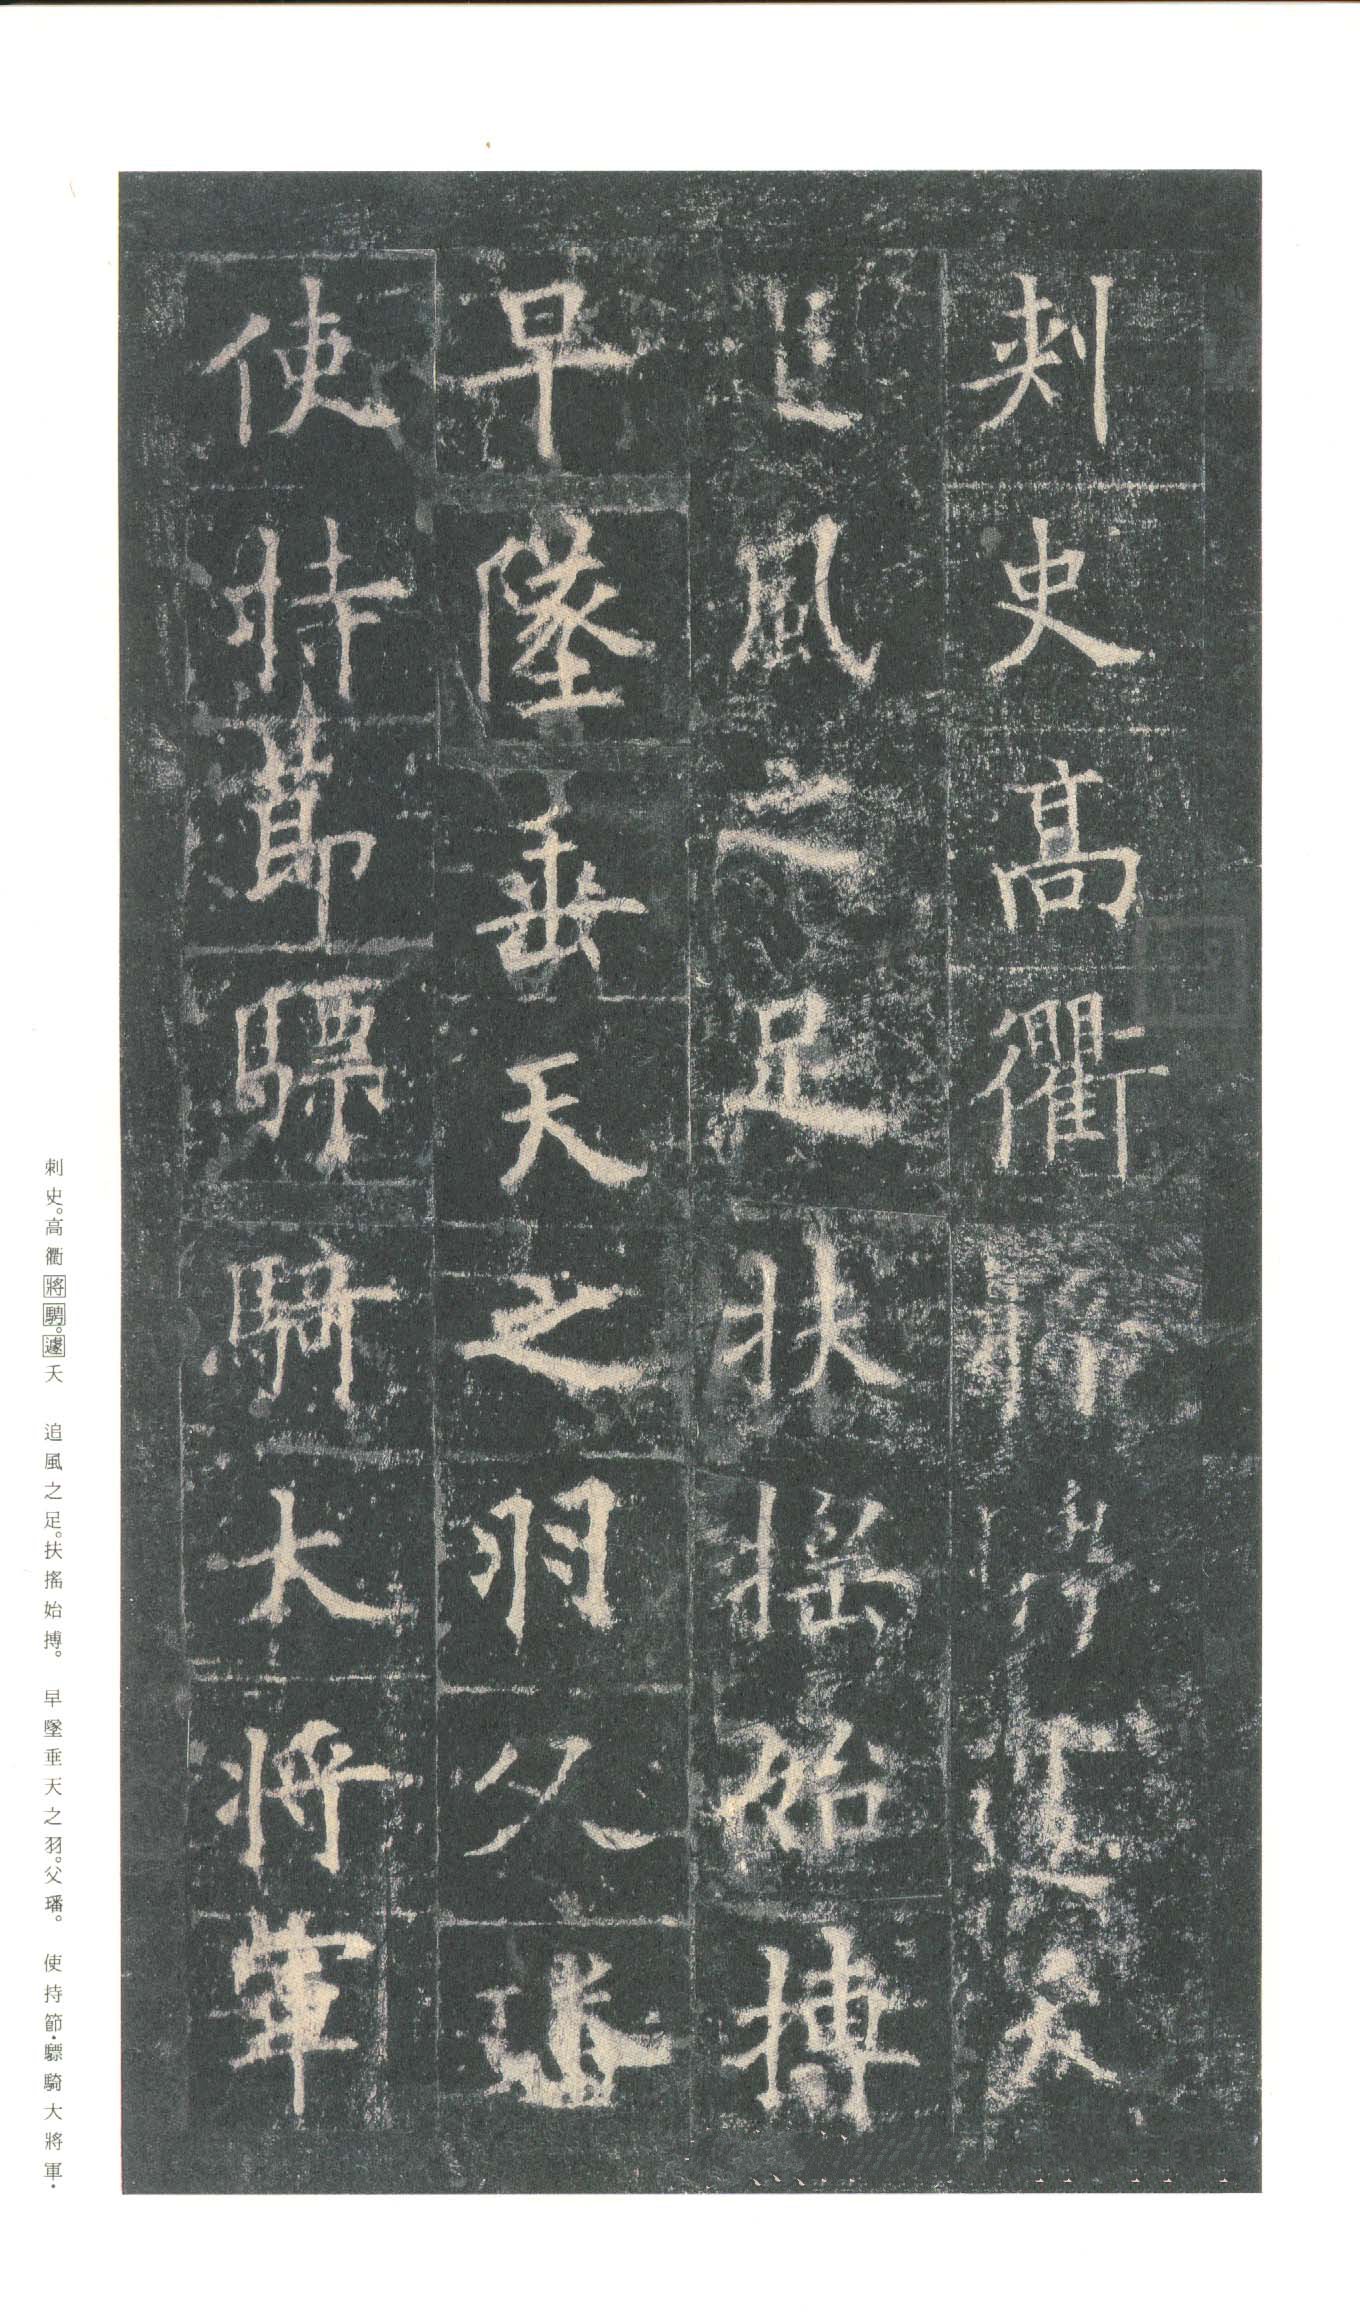 刺史高衢將騁遽夭
追風之足扶搖始搏
早墜垂天之羽父璠
使持節驃騎大將軍
刺史。高衢將騁。遽夭　追風之足。扶搖始搏。　早墜垂天之羽。父璠。　使持節·驃騎大將軍·